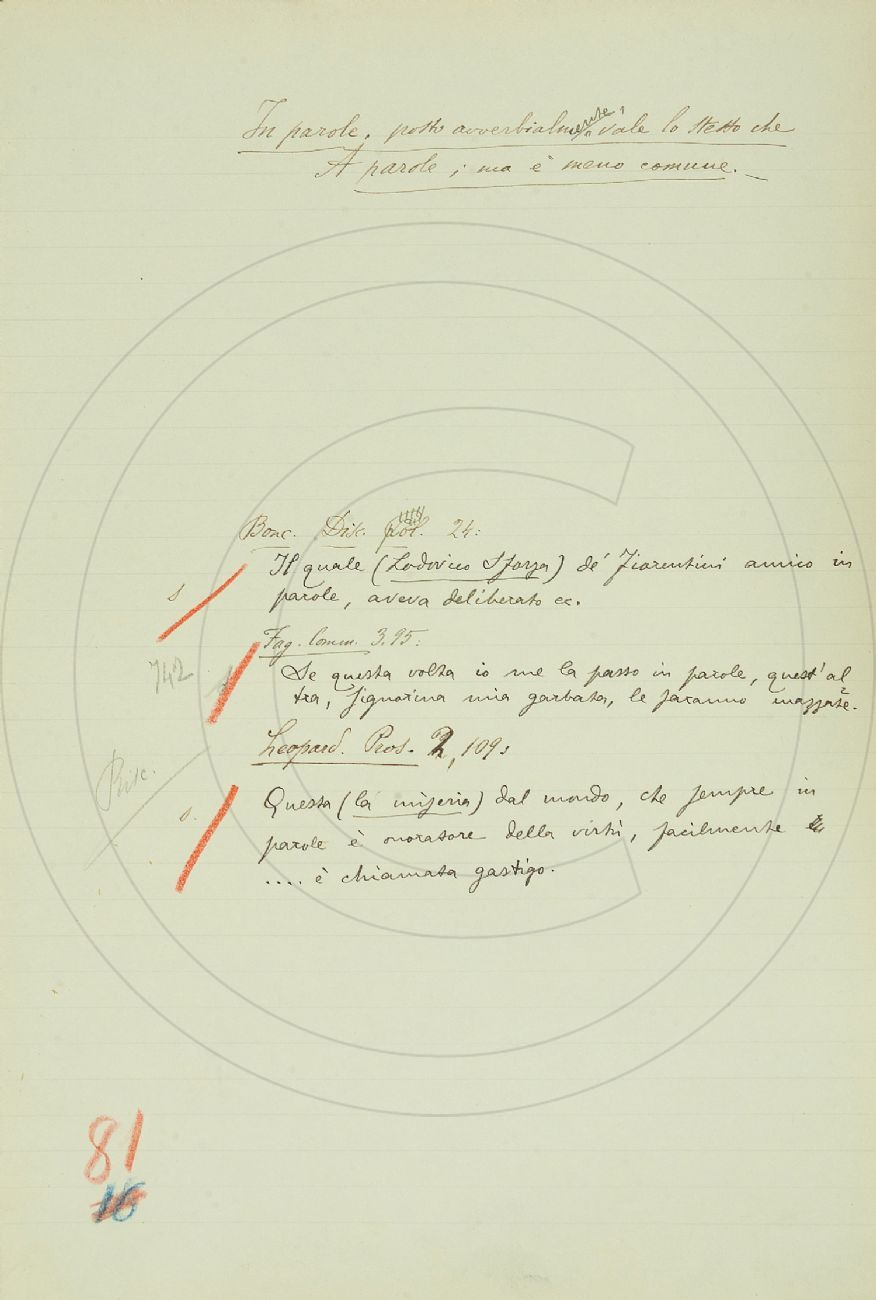 In parole, posto avverbialmente, vale lo stesso che
A parole; ma è meno comune.
Bonc. Disc. 24:
Il quale (Lodovico Sforza) de' Fiorentini amico in
parole, aveva deliberato ec.
s
Fag. Comm. 3.95:
742
Se questa volta io me la passo in parole, quest'al
tra, signorina mia garbata, le saranno mazzate.
Leopard. Pros. 2, 109:
Risc.
Questa (la miseria) dal mondo, che sempre in
s.
parole è onoratore della virtù, facilmente
.... è chiamata gastigo.
81
16